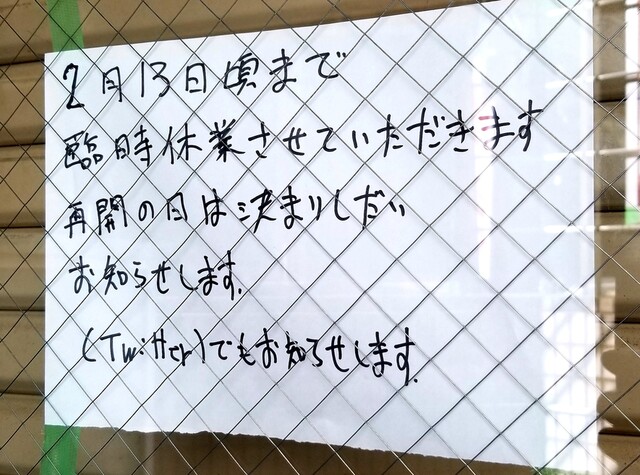 2月13日頃まで
臨時休業させていただきます
再開の日は決まりしだい
お知らせします。
(Twitter)でもお知らせします。